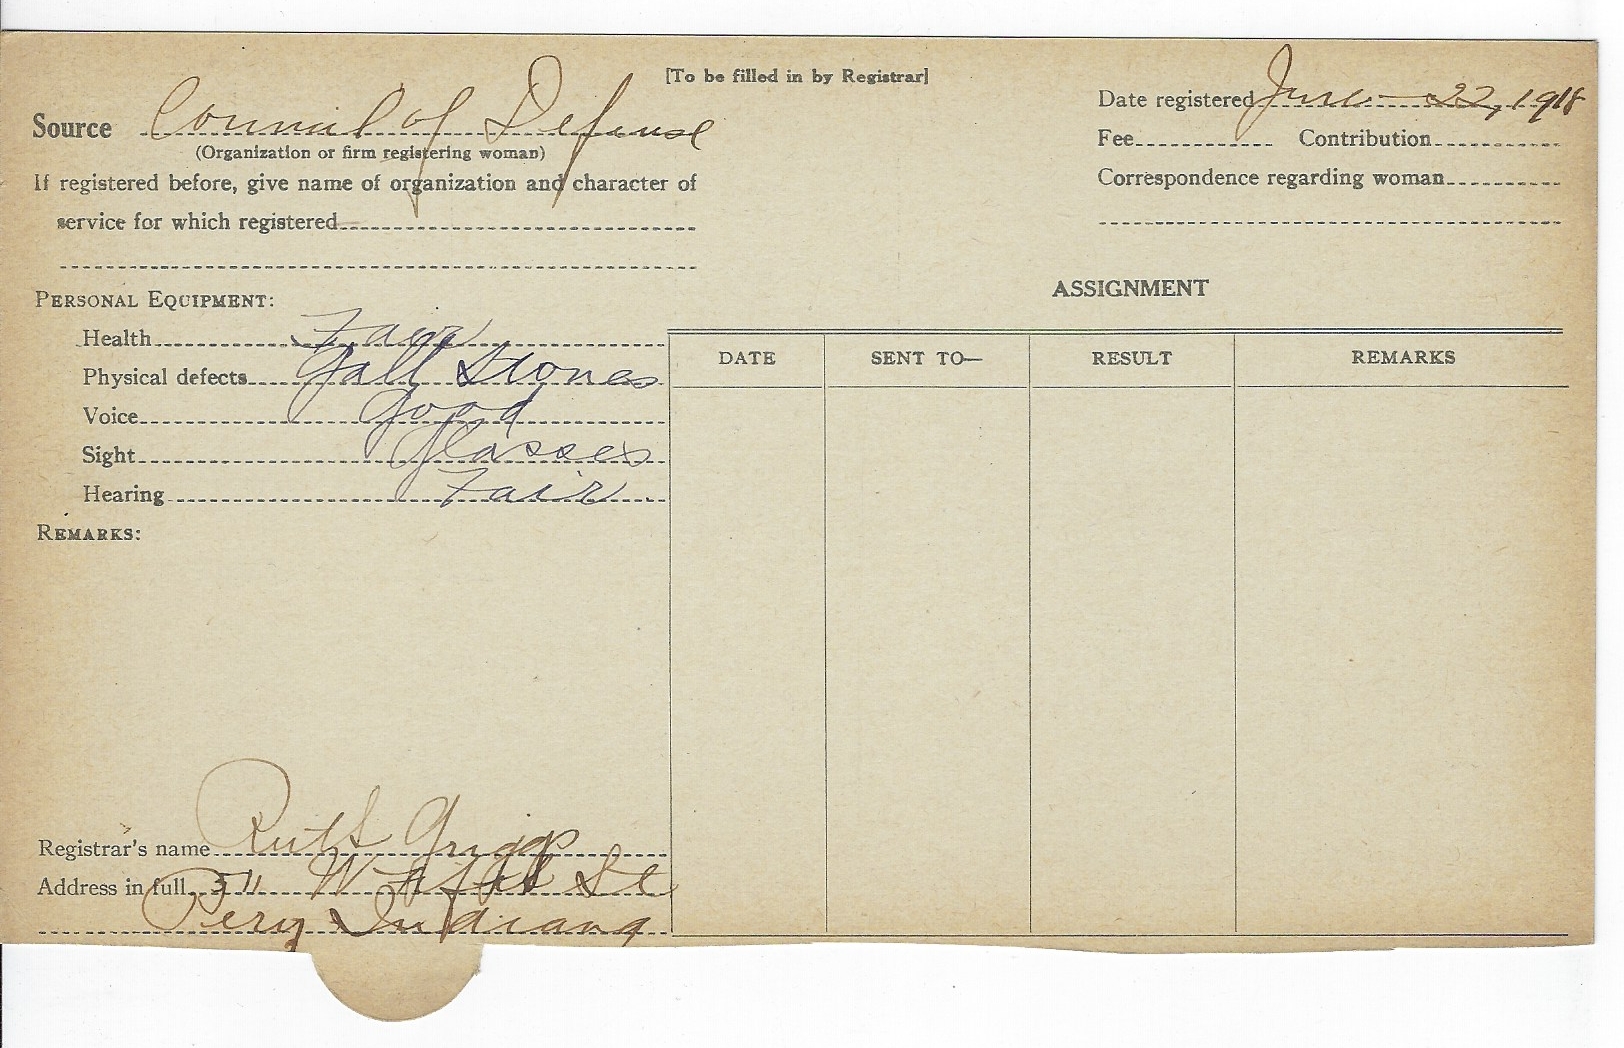 [To be filled in by Registrar]
Source Council of Defense
(Organization or firm registering woman)
If registered before, give name of organization and character of
service for which registered
Date registered June 22, 1918
Fee Contribution
Correspondence regarding woman
PERSONAL EQUIPMENT:
Health Fair
Physical defects Gall Stones
Voice Good
Sight Glasses
Hearing Fair
REMARKS:
ASSIGNMENT
DATE SENT TO— RESULT REMARKS
Registrar's name Ruth Griggs
Address in full 511 W Fifth St
Peru Indiana